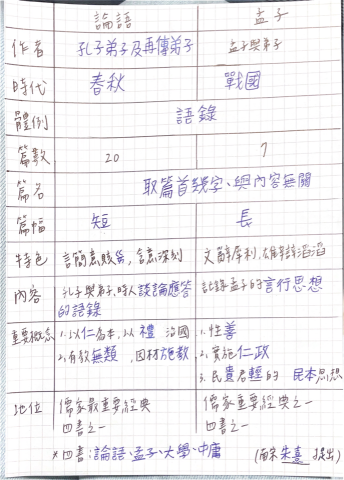 論語 孟子
作者 孔子弟子及再傳弟子 孟子與弟子
時代 春秋 戰國
體例 語錄
篇數 20 7
篇名 取篇首幾字、與內容無關
篇幅 短 長
特色 言簡意賅, 含意深刻 文辭犀利, 雄辯滔滔
內容 孔子與弟子、時人談論應答 記錄孟子的言行思想
的語錄
重要概念 1. 以仁為本, 以禮治國 1. 性善
2. 有教無類, 因材施教 2. 實施仁政
3. 民貴君輕的民本思想
地位 儒家最重要經典 儒家重要經典之一
四書之一 四書之一
*四書:論語、孟子、大學、中庸 (南宋朱熹提出)